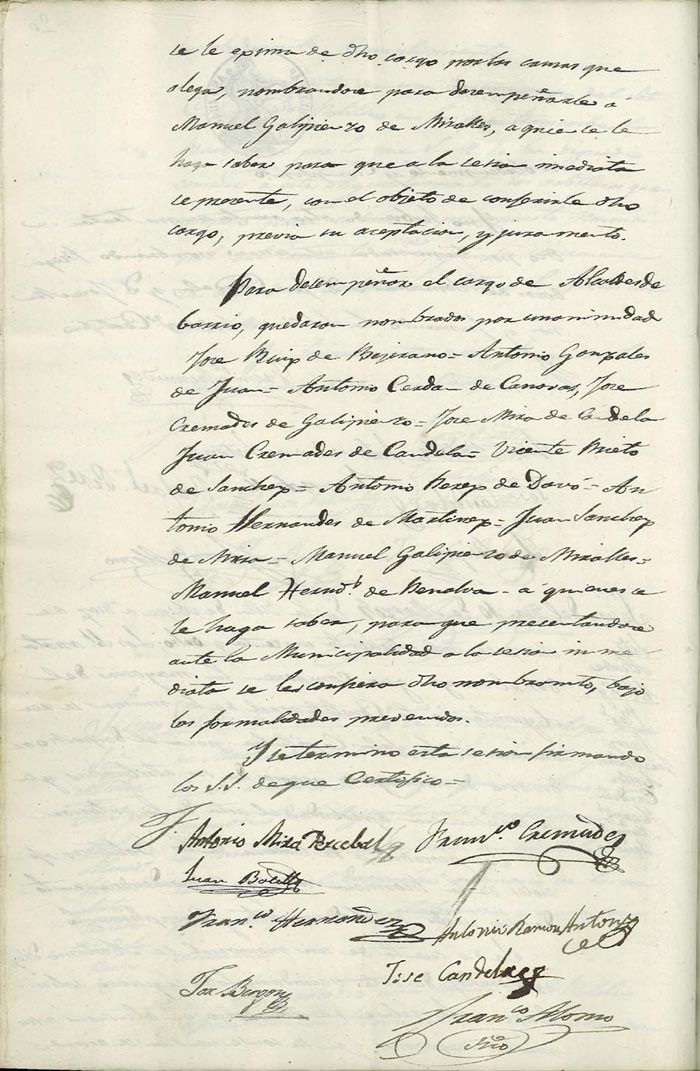 se le exima de dho. cargo por las causas que
alega, nombrandose para desempeñarle a
Manuel Galipienzo de Miralles, a quie se le
haga saber para que a la sesion imediata
se presente, con el objeto de conferirle dho
cargo, previa su aceptacion, y juramento.
Para desempeñar el cargo de Alcaldes de
barrio, quedaron nombrados por unanimidad
Jose Ruiz de Bejerano = Antonio Gonzales
de Juan = Antonio Cerdan de Canovas, Jose
Cremades de Galipienzo = Jose Mira de Candela
Juan Cremades de Candela = Vicente Prieto
de Sanchez = Antonio Perez de Davó = An
tonio Hernandes de Martinez = Juan Sanchez
de Mira = Manuel Galipienzo de Miralles =
Manuel Hernd.s de Penalva - a quienes se
le haga saber, para que presentandose
ante la Municipalidad a la sesion in me
diata se les confiera dho nombramto, bajo
las formalidades prevenidas.
Y se termino esta sesion firmando
los S.S. de que Certifico =
Antonio Mira Percebal Fran.co Cremades
Juan
Fran.co Hernandez Antonio Ramon Anton
Jose Candela
Jose
Fran.co Alonso
Srio